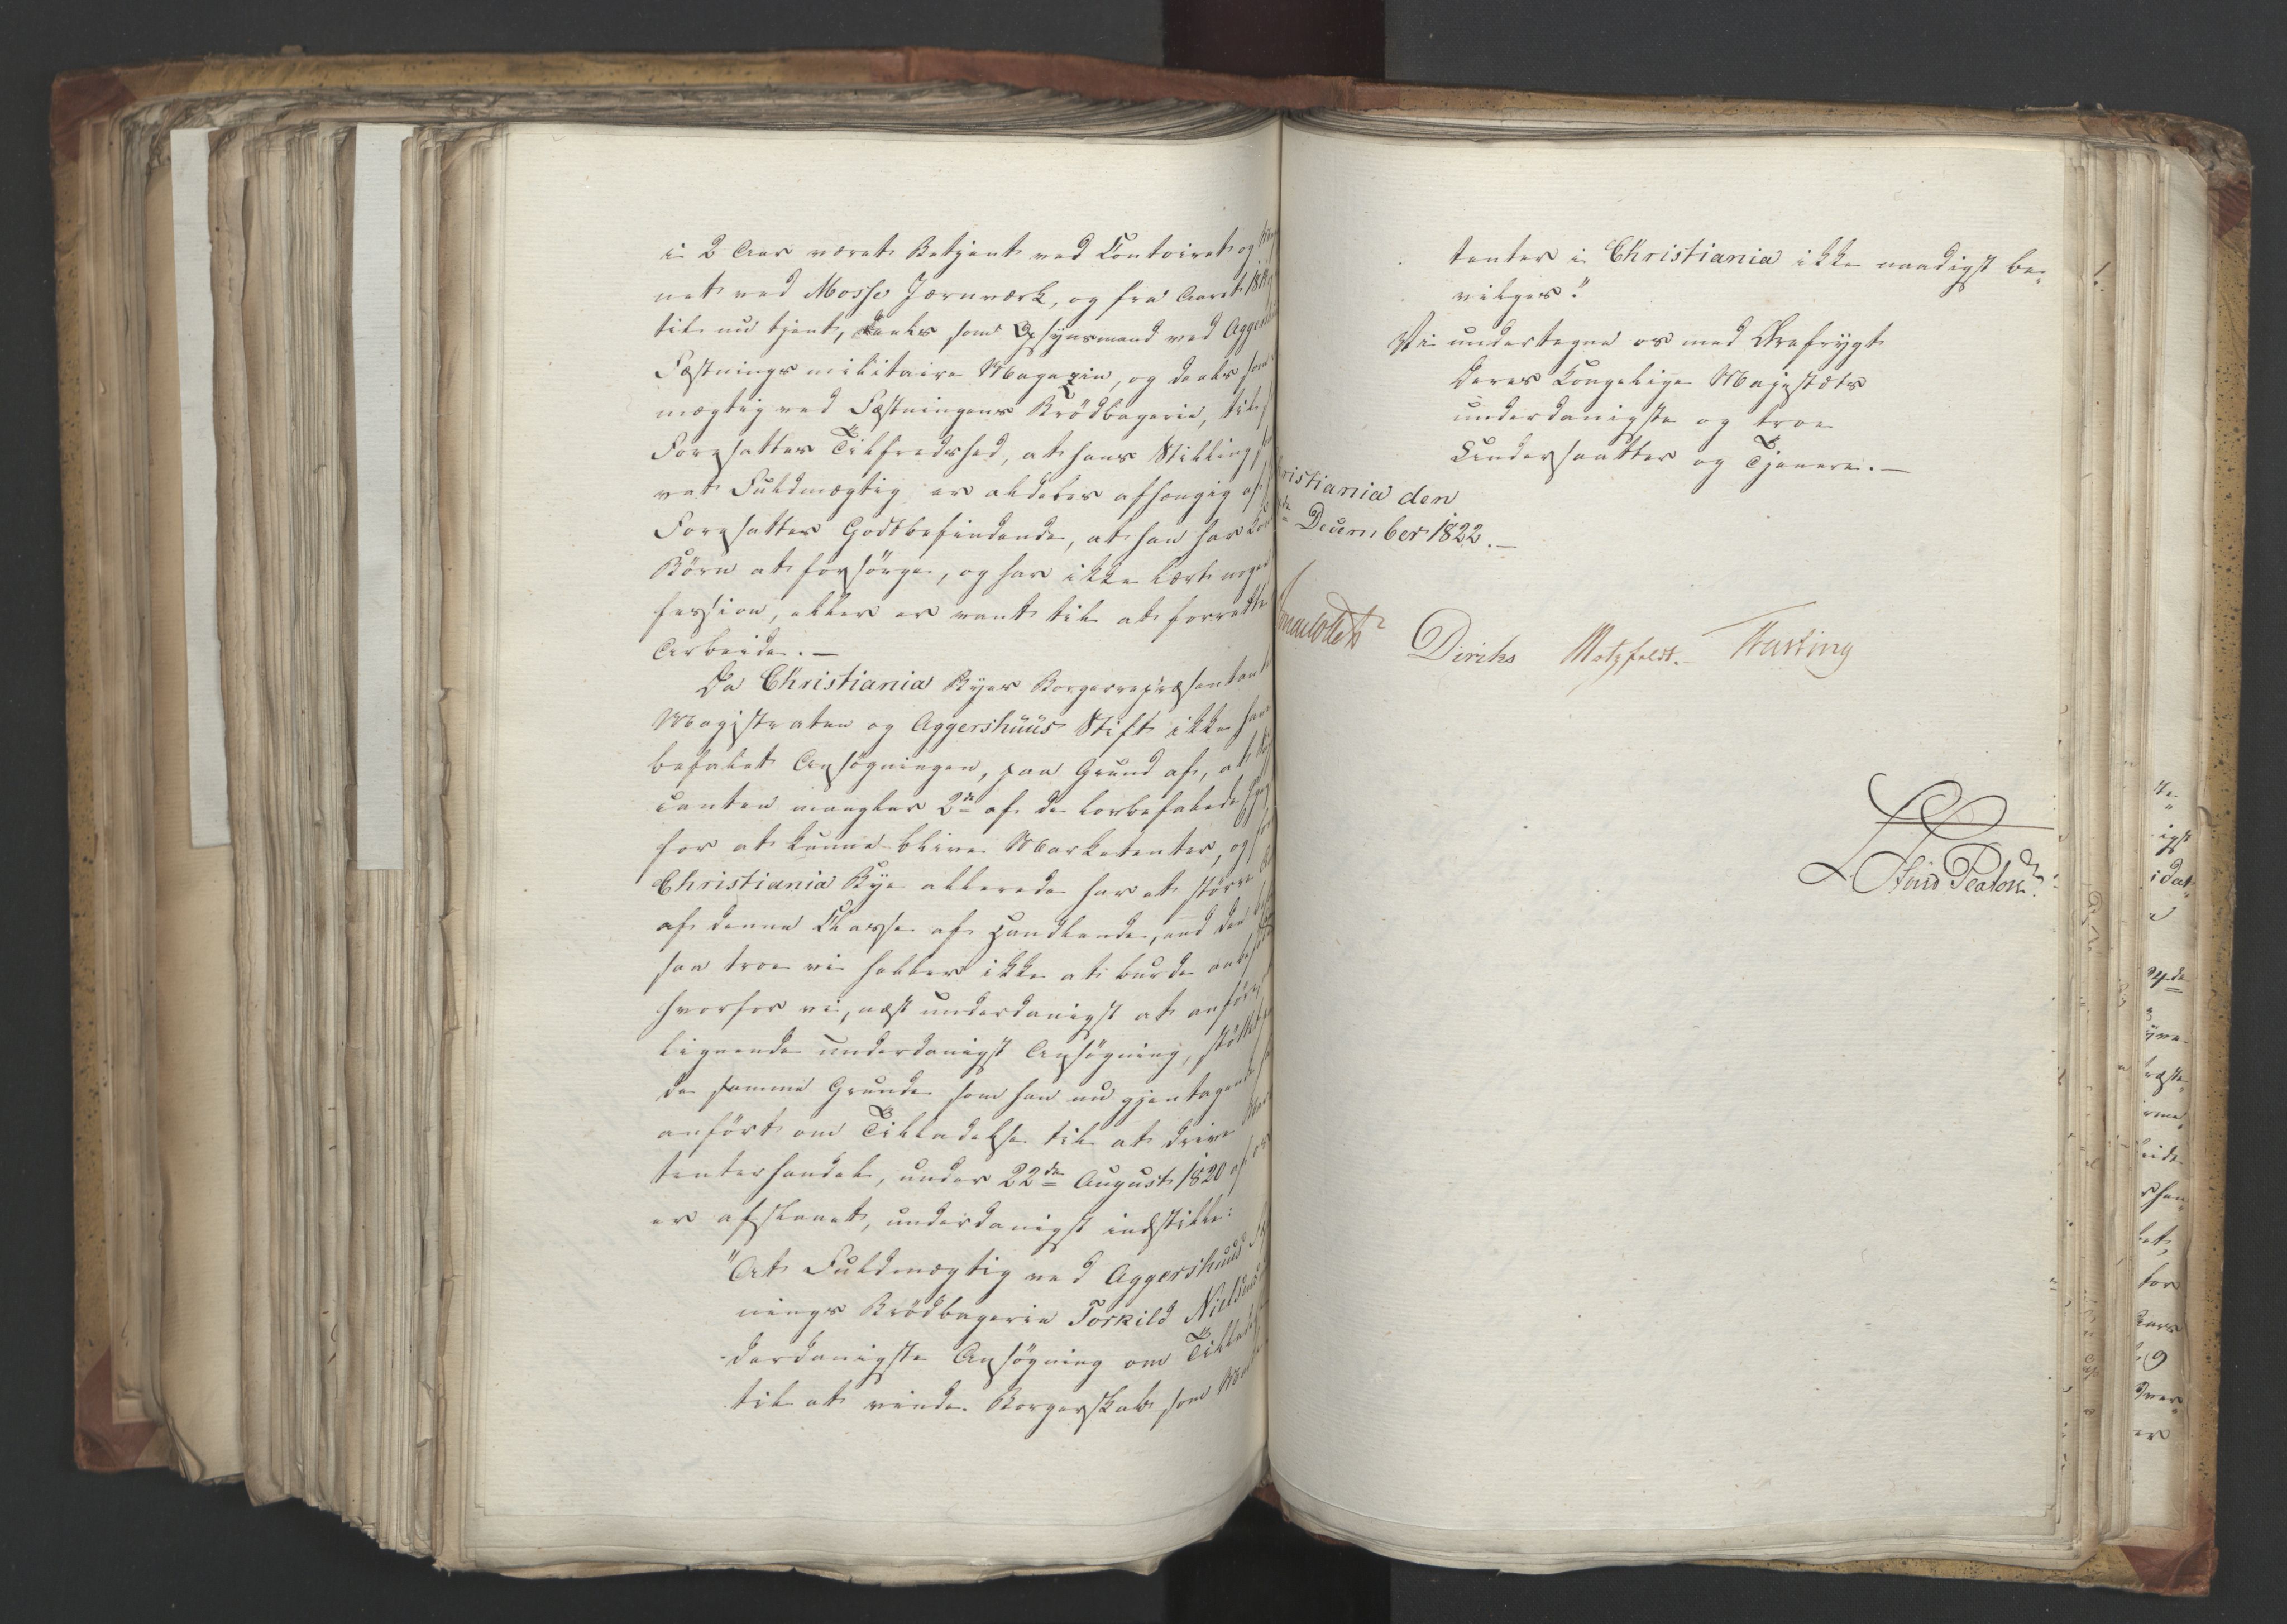 i 2 Aar været Betjent ved Contoiret og
net ved Mosse Jernværk, og fra Aaret
til nu tjent, deels som Opsynsmand ved Aggers
Fæstnings militaire Magazin, og deels som
mægtig ved Fæstningens Brödbagerie, til
Foresattes Tilfredshed, at hans Stilling
vat Fuldmægtig er aldeles afhængig af
Foresattes Godtbefindende, at han har
Börn at forsörge, og har ikke lært noget
fession, eller er vant til at forrette
Arbeide. —
Da Christiania Byes Borgerrepræsentant
Magistraten og Aggershuus Stift ikke have
befalet Ansögningen, paa Grund af, at
canten mangler 2de af de lovbefalede
for at kunne blive Marketenter, og
Christiania Bye allerede har et större
af denne Classe af Handlende, end den
saa troe vi heller ikke at burde anbe
hvorfor vi, næst underdanigst at anföre
lignende underdanigst Ansögning, stöttet
de samme Grunde som han nu gjentagende
anfört om Tilladelse til at drive
tenterhandel, under 22de August 1820 af
er afslaaet, underdanigst indstille:
"At Fuldmægtig ved Aggershuus
nings Brödbagerie Torkild Nielsens
derdanigste Ansögning om Tillad
til at vinde Borgerskab som
tenter i Christiania ikke naadigst be-
vilges."
Vi undertegne os med Ærefrygt
Deres Kongelige Majestæts
underdanigste og troe
Undersaatter og Tjenere. —
ristiania den
December 1822. —
Diriks Motzfeldt. Fasting